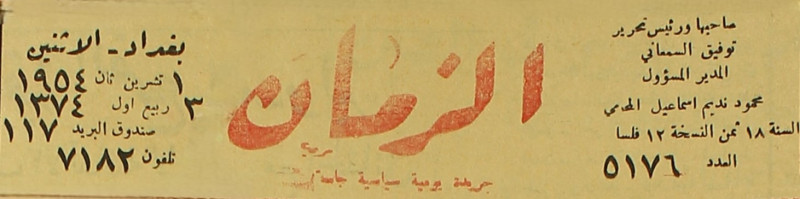 صاحبها ورئيس تحرير
توفيق السمعاني
المدير المسؤول
محمود نديم اسماعيل المحامي
السنة ١٨ ثمن النسخة ١٢ فلسا
العدد ٥١٧٦
الزمان
جريدة يومية سياسية جامعة
بغداد - الاثنين
١ تشرين ثان ١٩٥٤
٣ ربيع اول ١٣٧٤
صندوق البريد ١١٧
تلفون ٧١٨٢